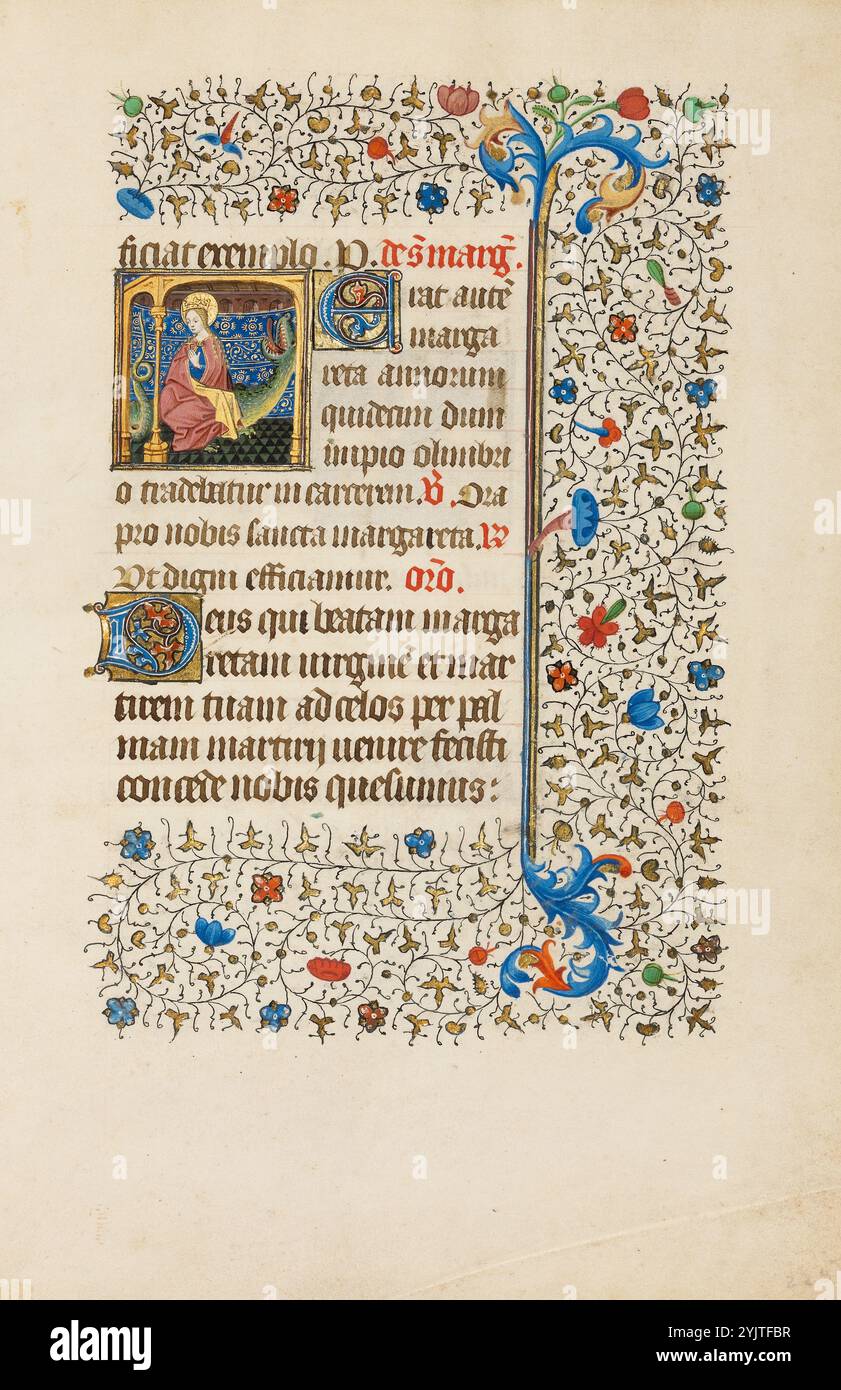 ficiat exemplo. P. de s̄ marḡ.
Erat autē
marga
reta annorum
quidecim dum
impio olimbri
o tradebatur in carcerem. V̄. Ora
pro nobis sancta margareta. R
Vt digni efficiamur. orō.
Deus qui beatam marga
retam uirginē et mar
tirem tuam ad celos per pal
mam martirij uenire fecisti
concede nobis quesumus:
alamy
Image ID: 2YJTFBR
www.alamy.com